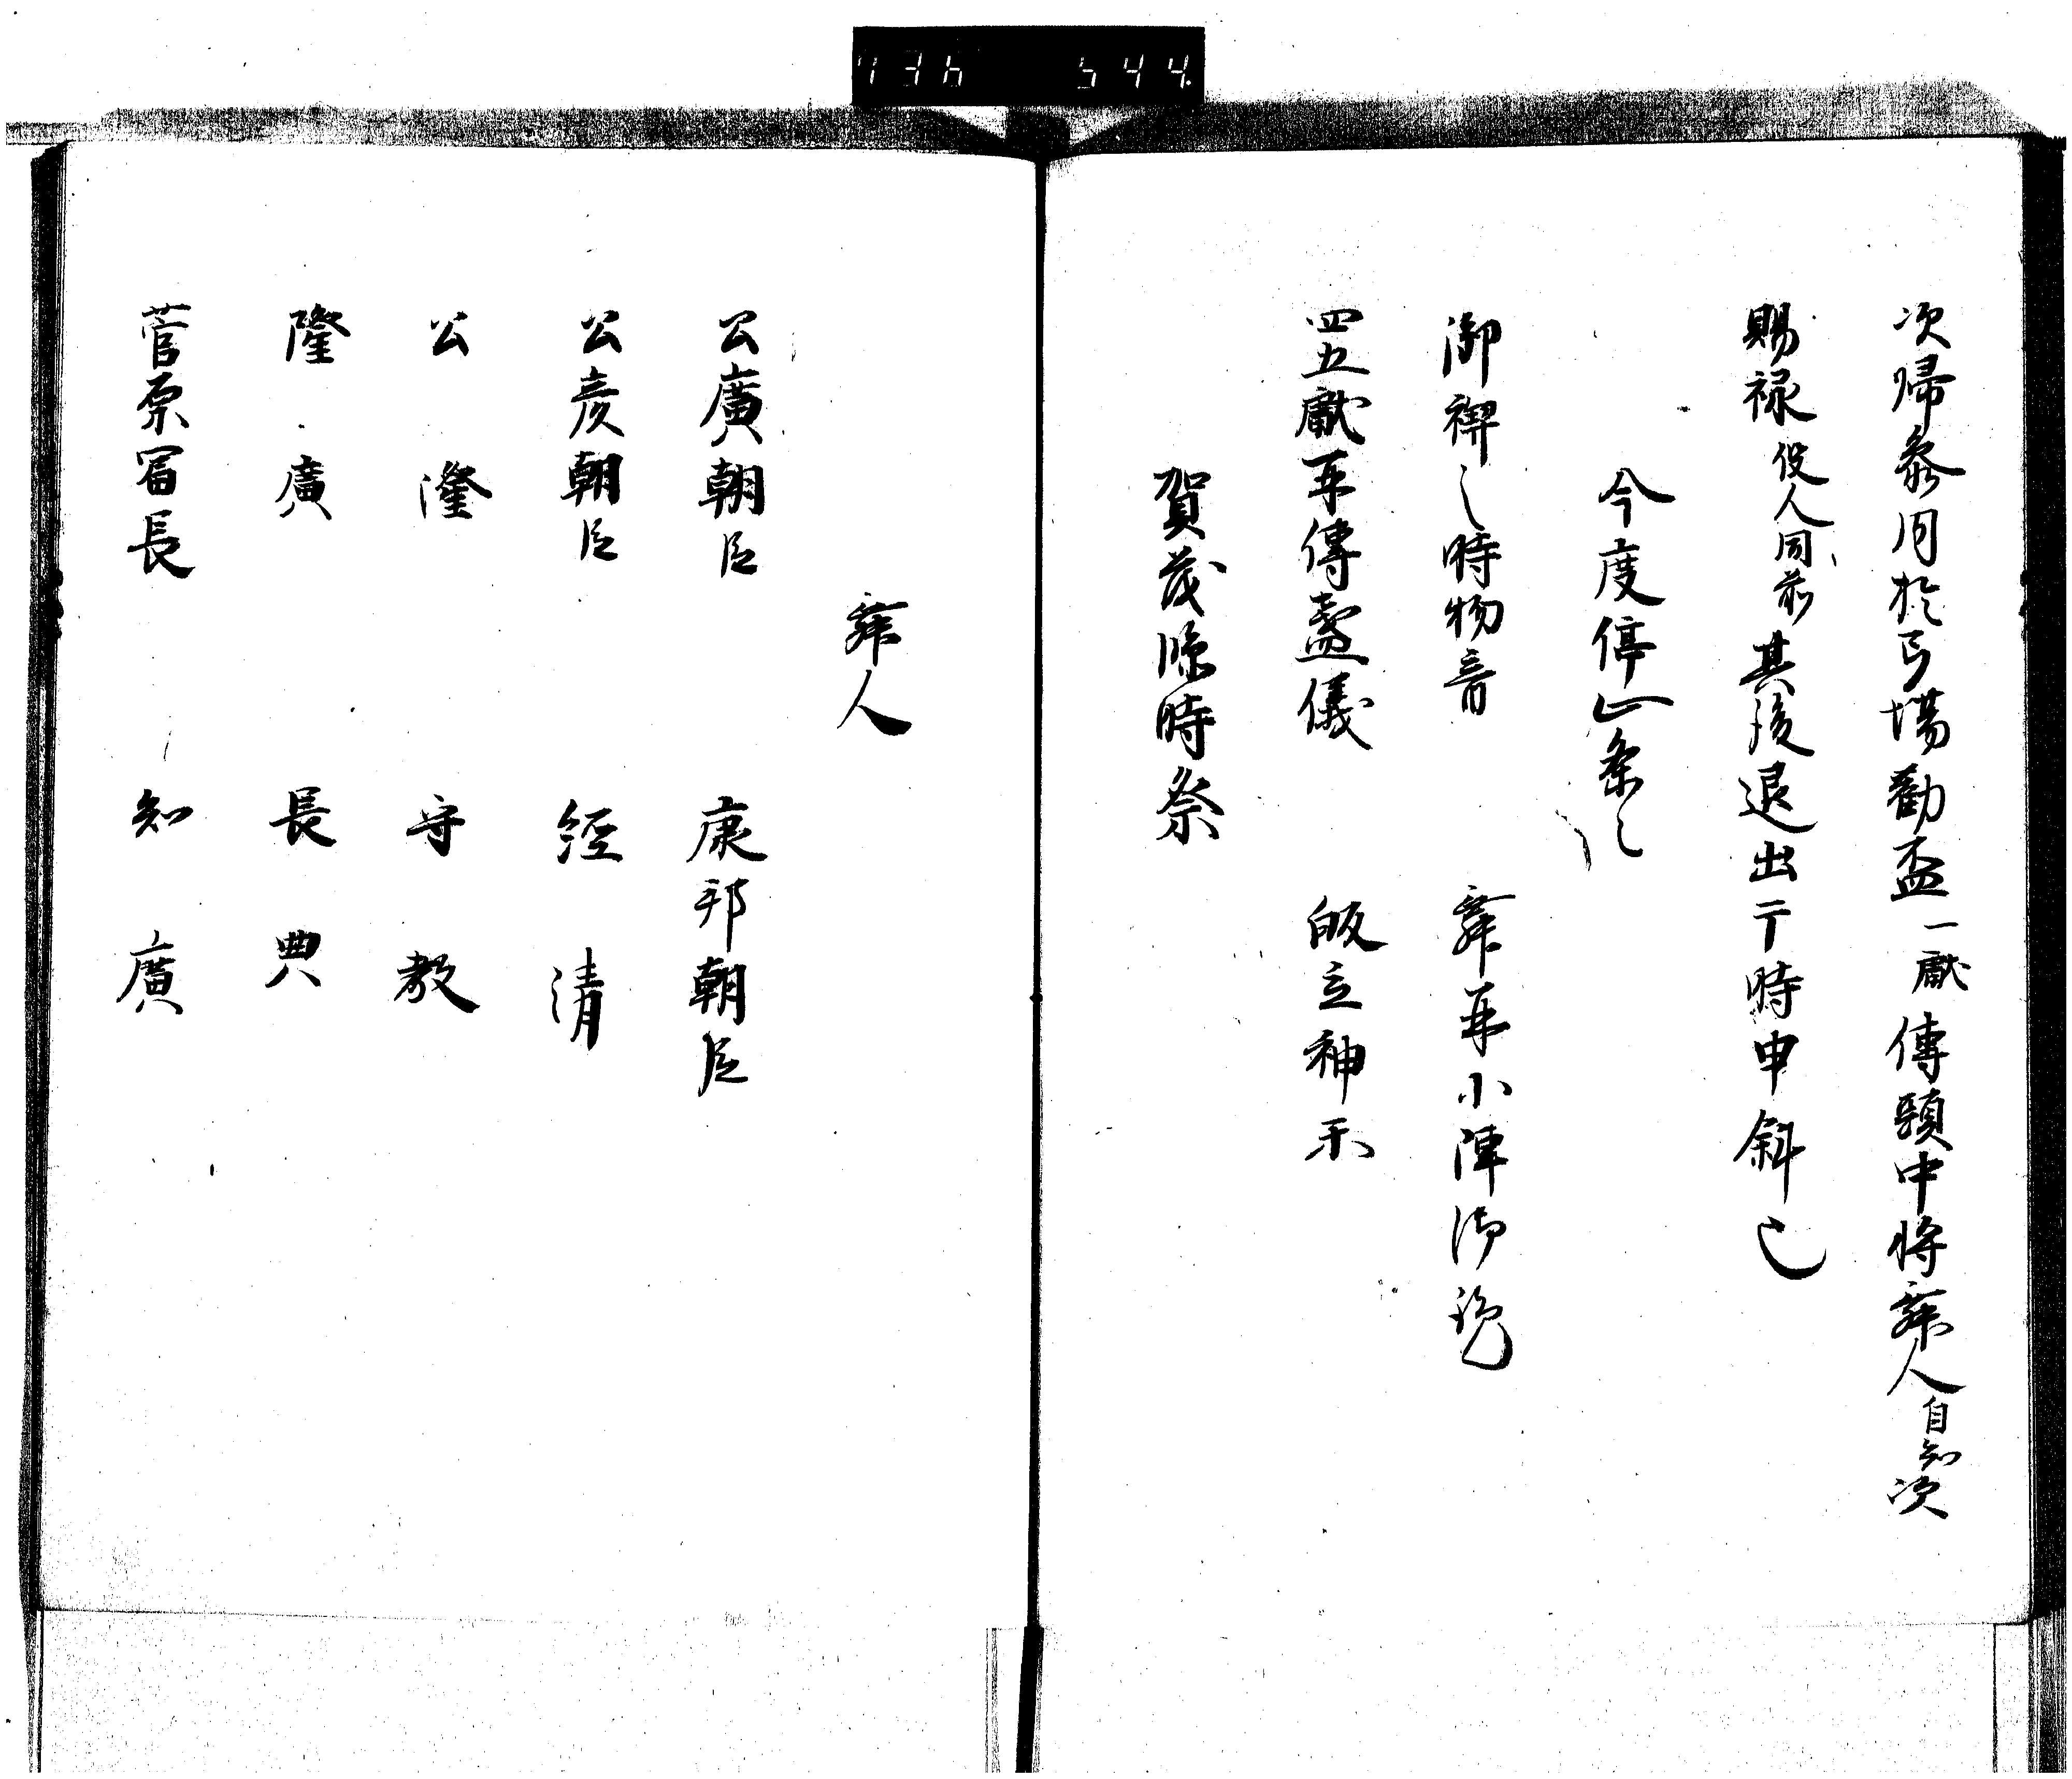 736 544
次帰参同於弓場勸盃一献傳頭中将舞人自知次
賜禄役人同前其後退出于時申斜也
今度停止条々
御禊之時物音 舞再小陣御覧
四五献再傳盞儀 皈立神示
賀茂臨時祭
舞人
公廣朝臣 康邦朝臣
公彦朝臣 經清
公隆 守教
隆廣 長典
菅原冨長 知廣